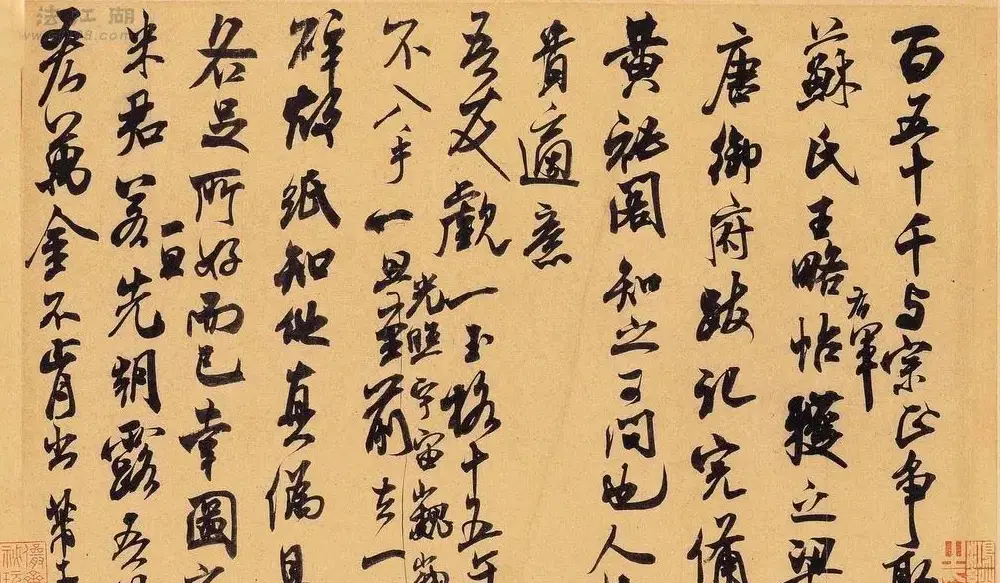 百五十千与宗正爭取
蘇氏王略帖右軍獲之梁
唐御府跋記完備
黃祕閣知之可問也人
貴適意
吾友覷一玉格十五年
不入手一旦光照宇宙巍峨至前去一
碎故紙知他真偽且
各足所好而已幸圖
米君若一旦先朝露吾
吝萬金不肯出芾
法江湖